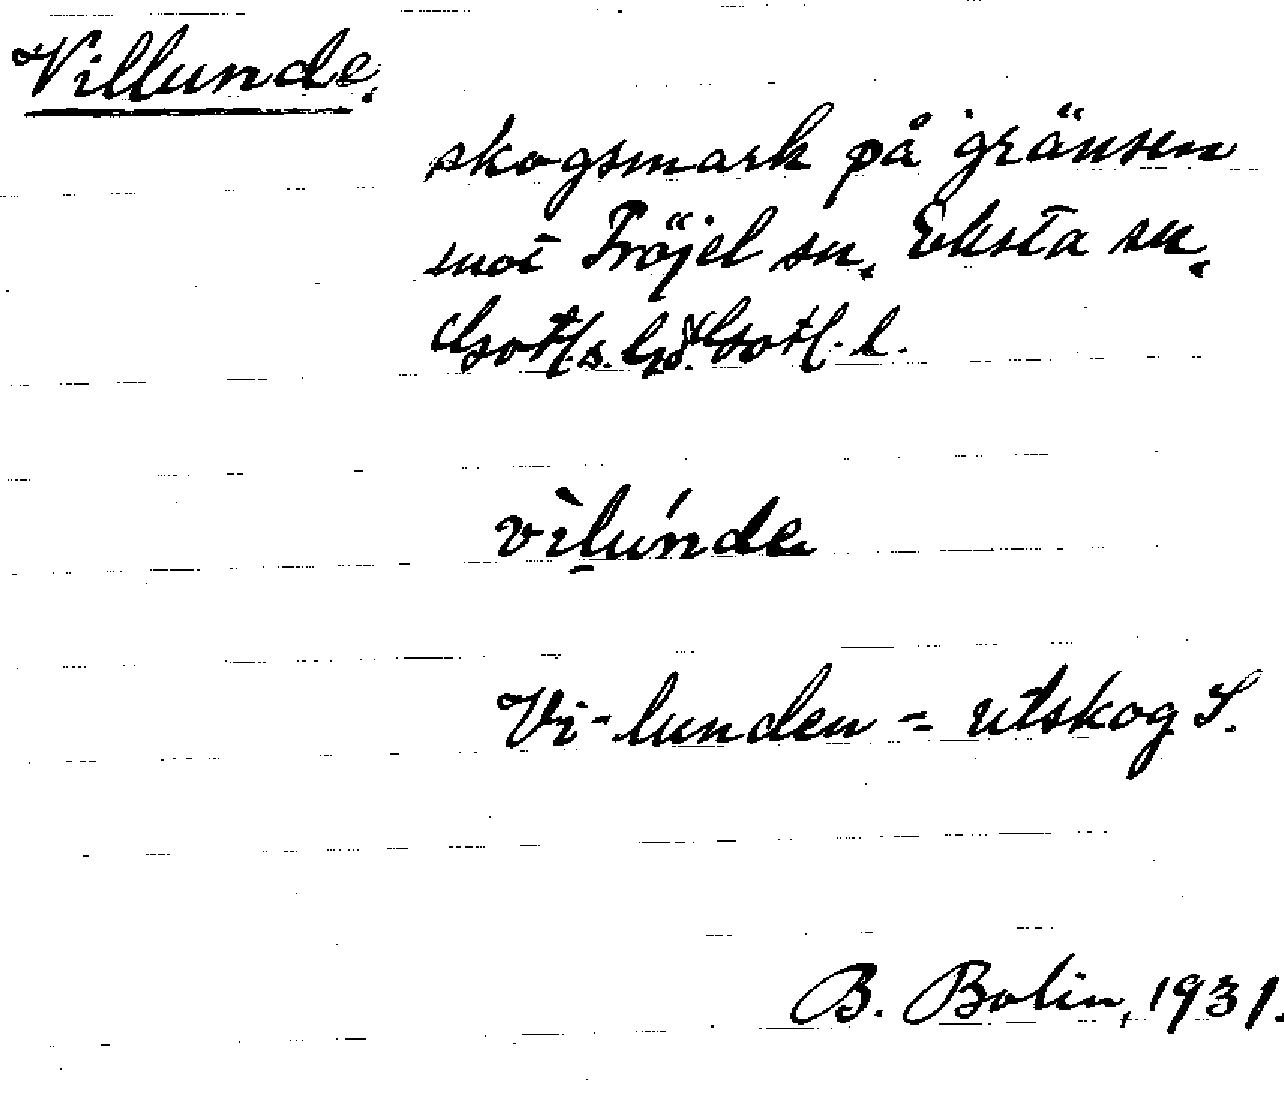 Villunde.
skogsmark på gränsen
mot Fröjel sn. Eksta sn.
Gotl. s. hd. Gotl. l.
vìlúnde
Vi-lunden = utskog S.
B. Bolin, 1931.